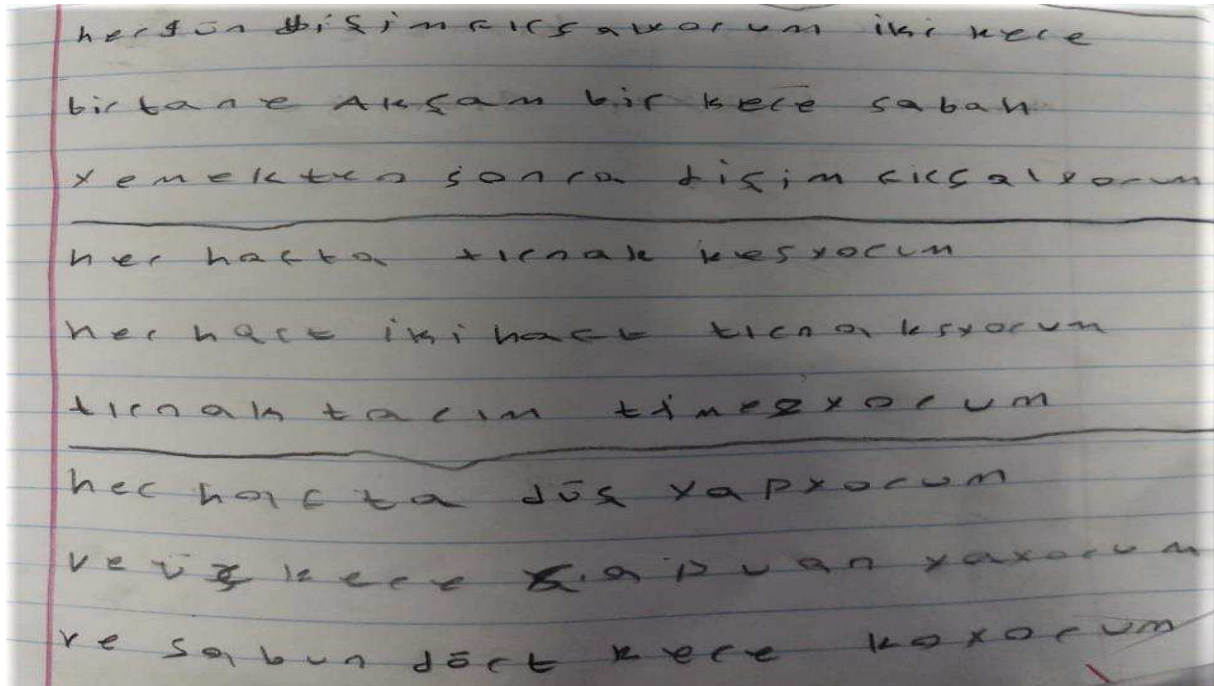 hergün dişim fırçayorum iki kere
birtane Akşam bir kere sabah
yemekten sonra dişim fırçalyorum
her hafta tırnak kesyorum
her haft iki haft tırnak ksyorum
tırnak tarım timezyorum
her hafta düş yapyorum
ve üç kere şapuan yayorum
ve sabun dört kere koyorum